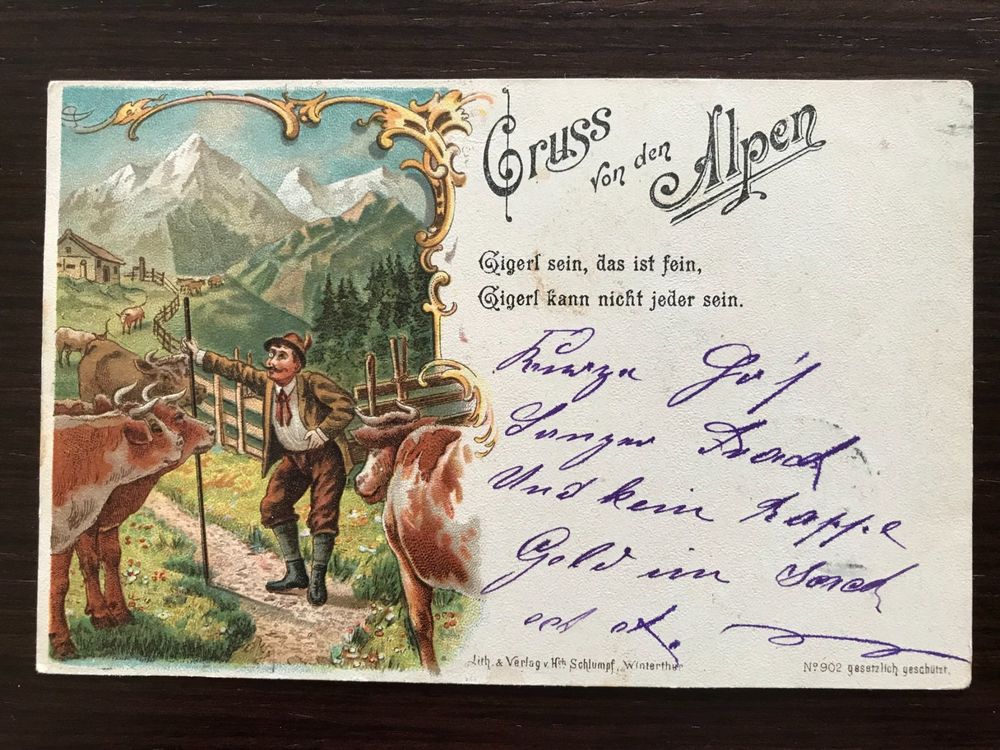 Gruss von den Alpen
Gigerl sein, das ist fein,
Gigerl kann nicht jeder sein.
Kurze
Langer
Und kein Rappe
Geld im Sack
Lith. & Verlag v. Hch. Schlumpf, Winterthur
No 902 gesetzlich geschützt.